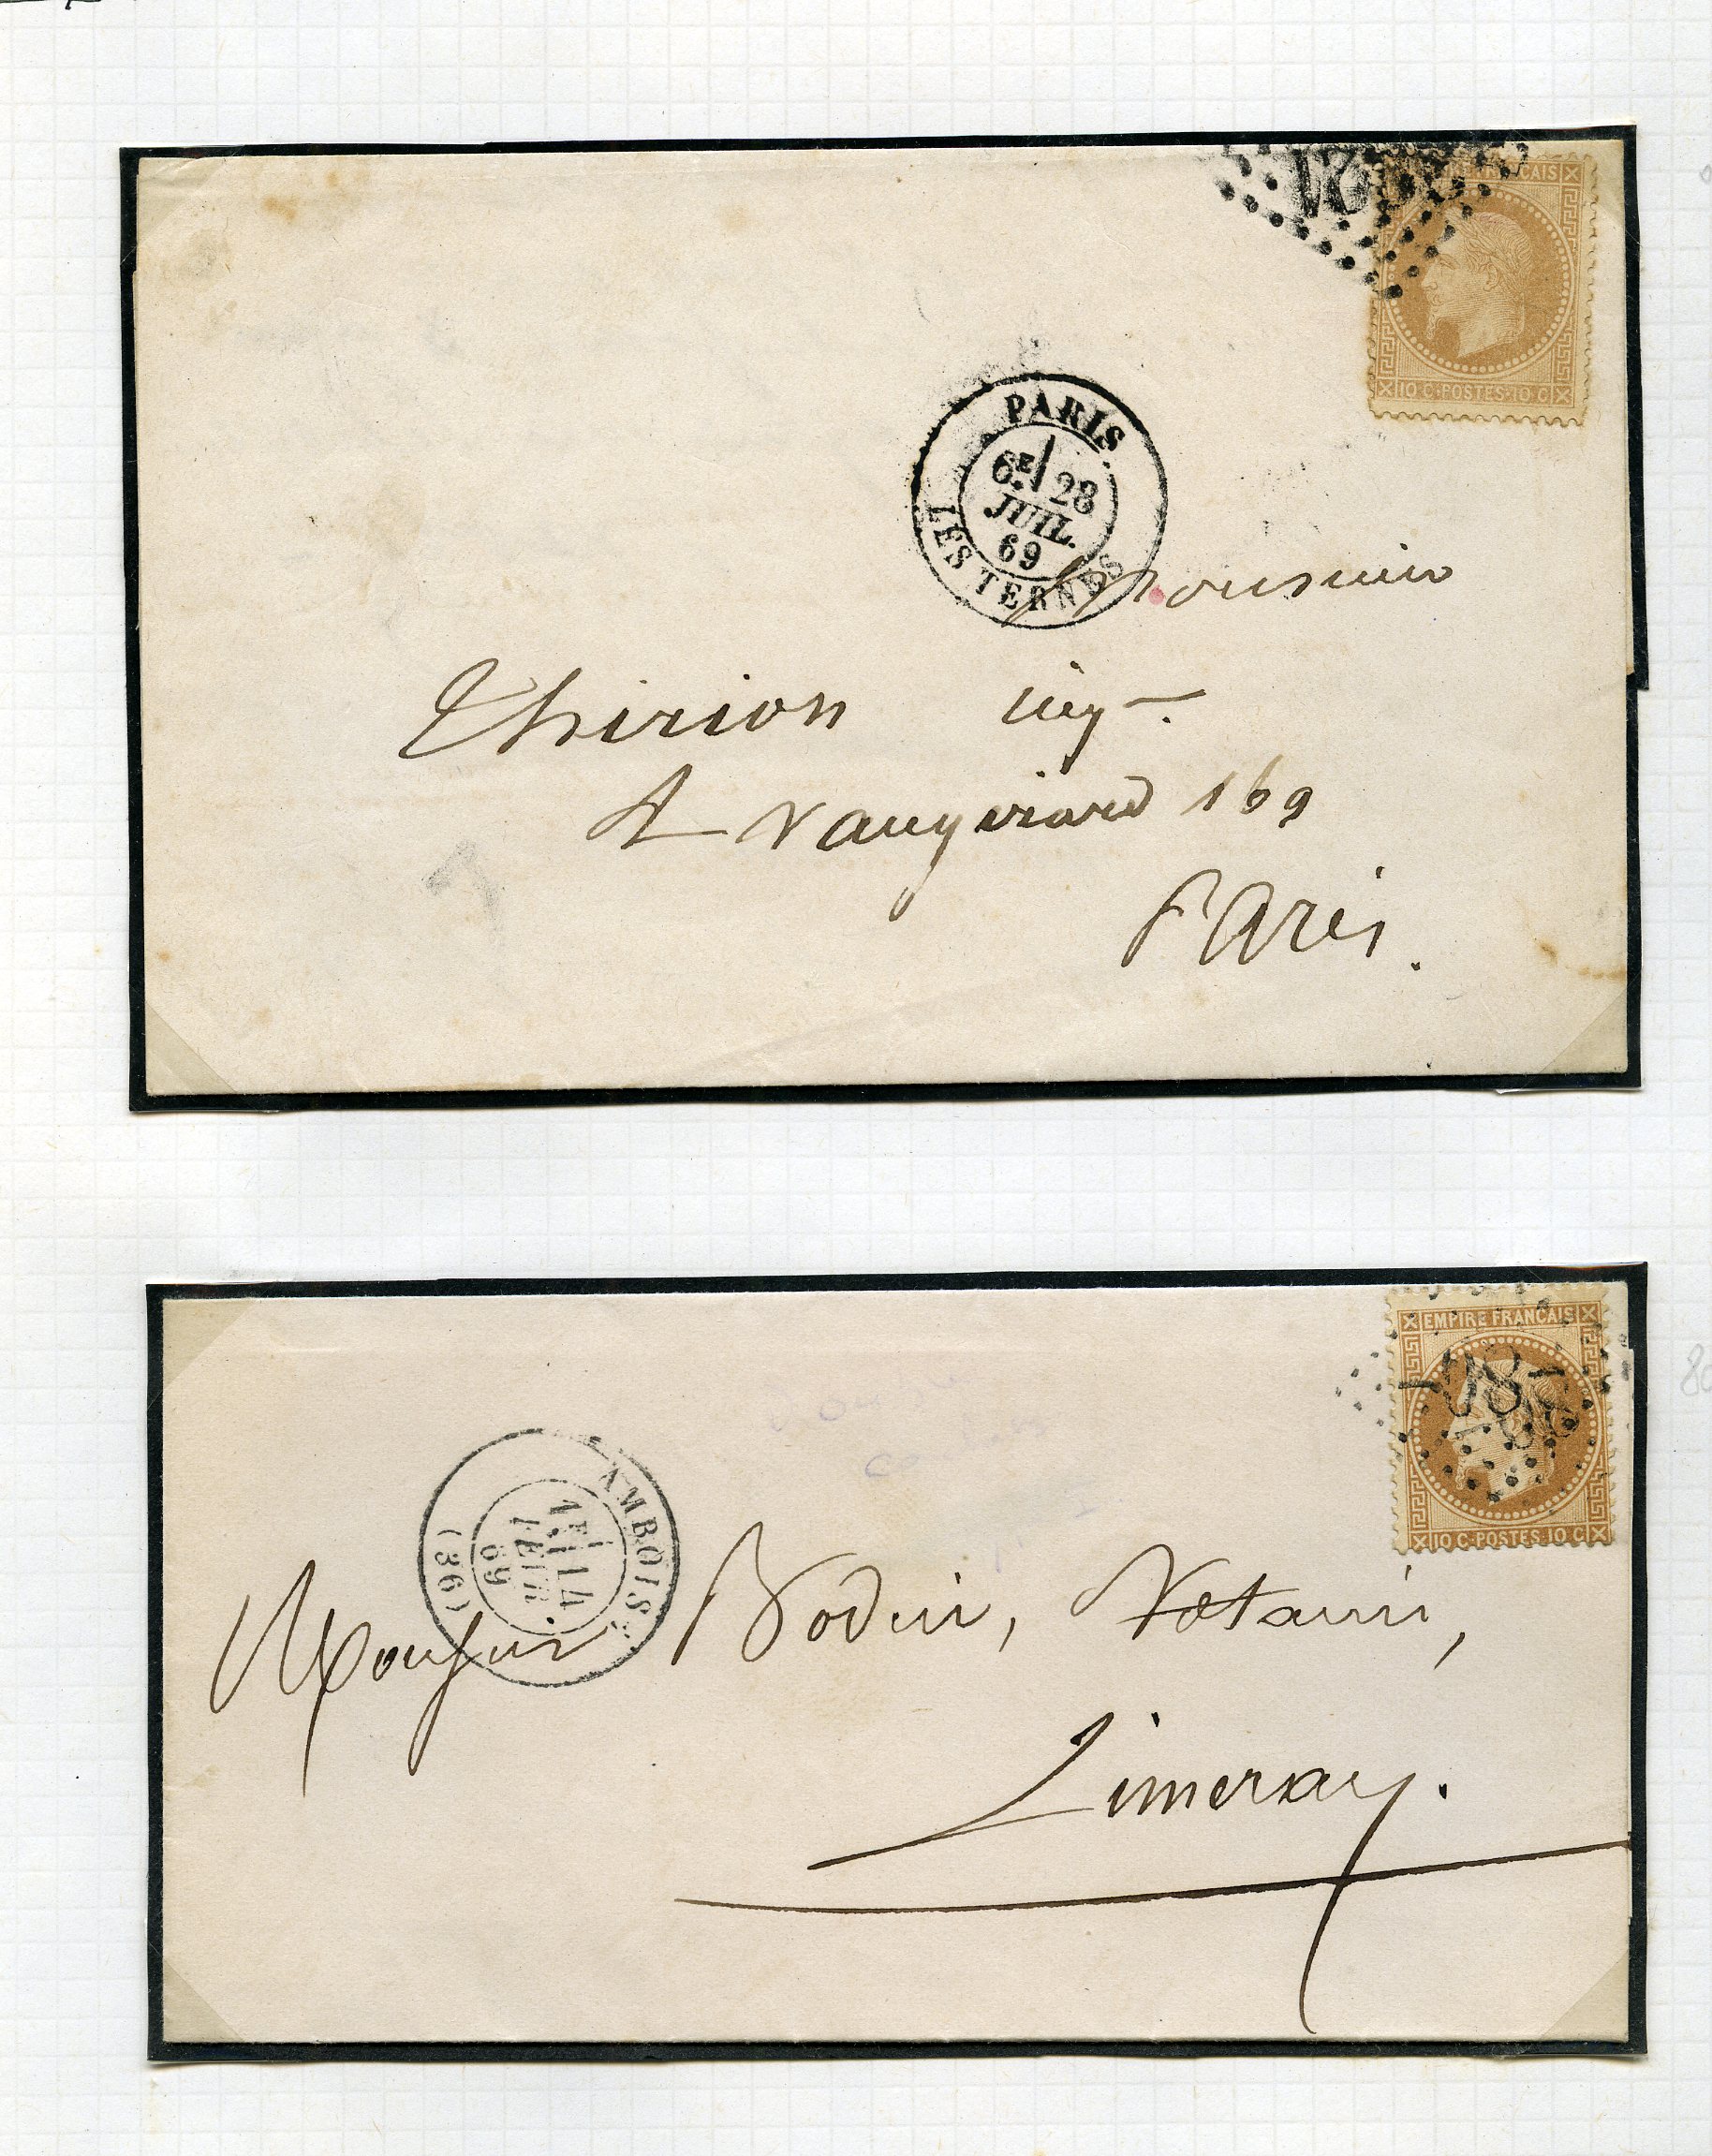 EMPIRE FRANÇAIS
10 C·POSTES·10 C
PARIS
6E/ 28
JUIL.
69
LES TERNES
Monsieur
Thirion ingr.
R Vaugirard 169
Paris.
EMPIRE FRANÇAIS
10 C·POSTES·10 C
AMBOISE
14
FEVR.
69
(36)
Monsieur Bodin, Notaire,
Limeray.